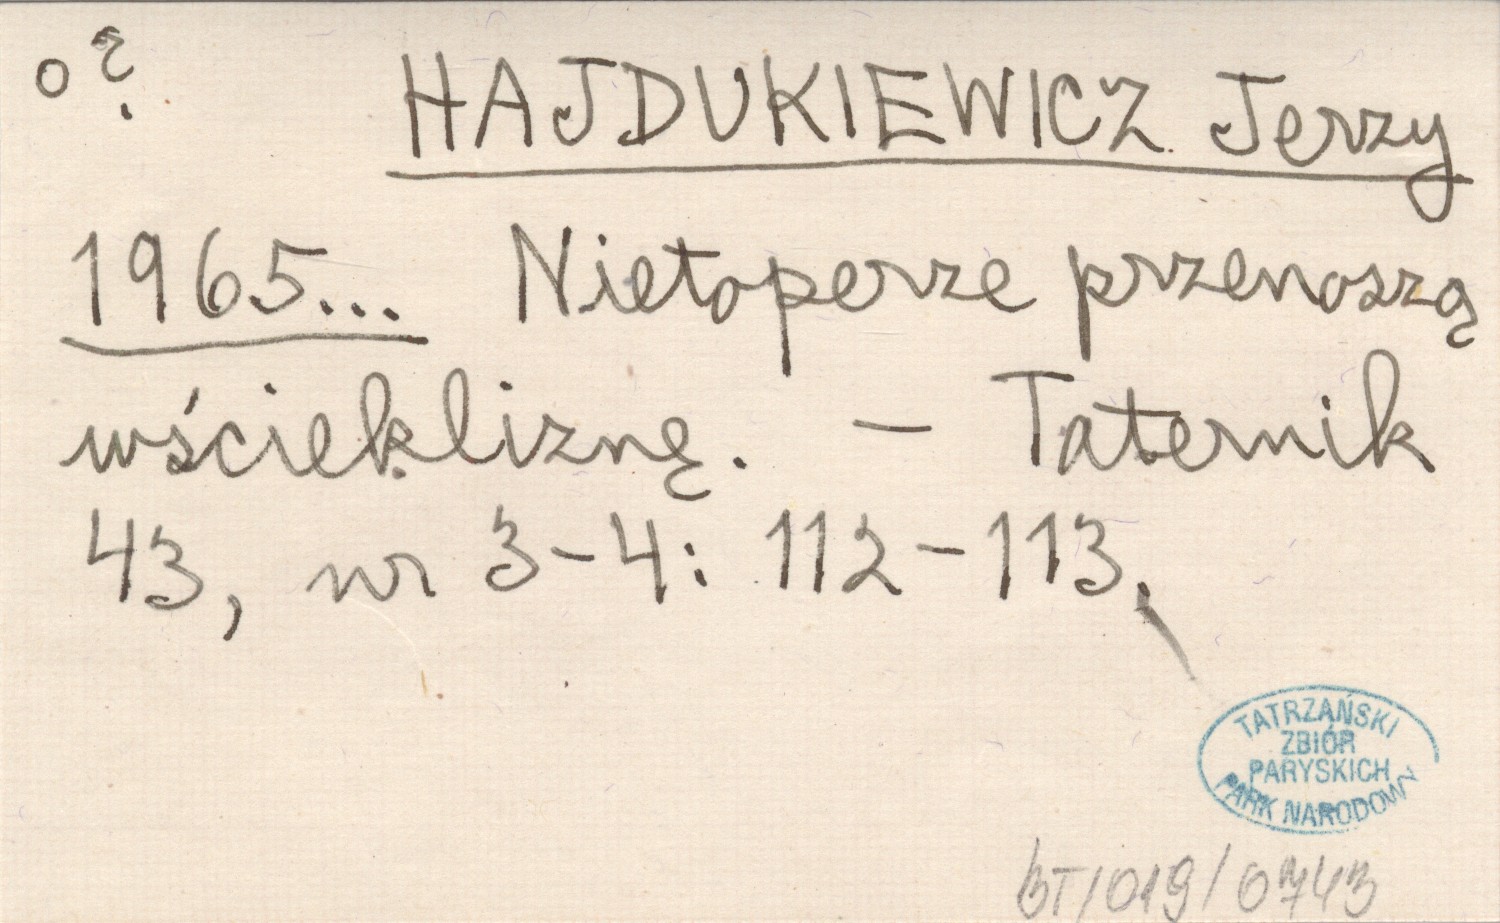 o ?
HAJDUKIEWICZ Jerzy
1965... Nietoperze przenoszą
wściekliznę. – Taternik
43, nr 3–4: 112–113.
TATRZAŃSKI
ZBIÓR
PARYSKICH
PARK NARODOWY
BT/019/0743